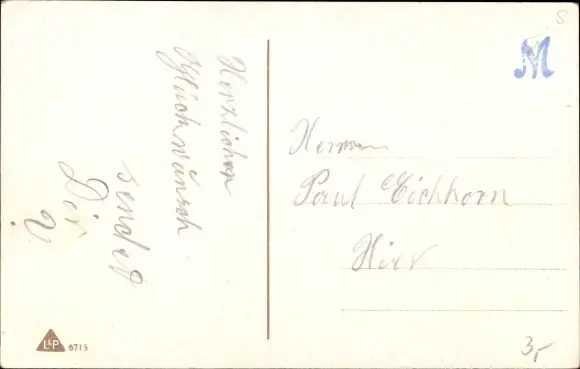 Herzlichen
Glückwünsch
sendet
Dir
V.
Herrn
Paul Eichhorn
Hier
M
L&P
6715
3,-
S